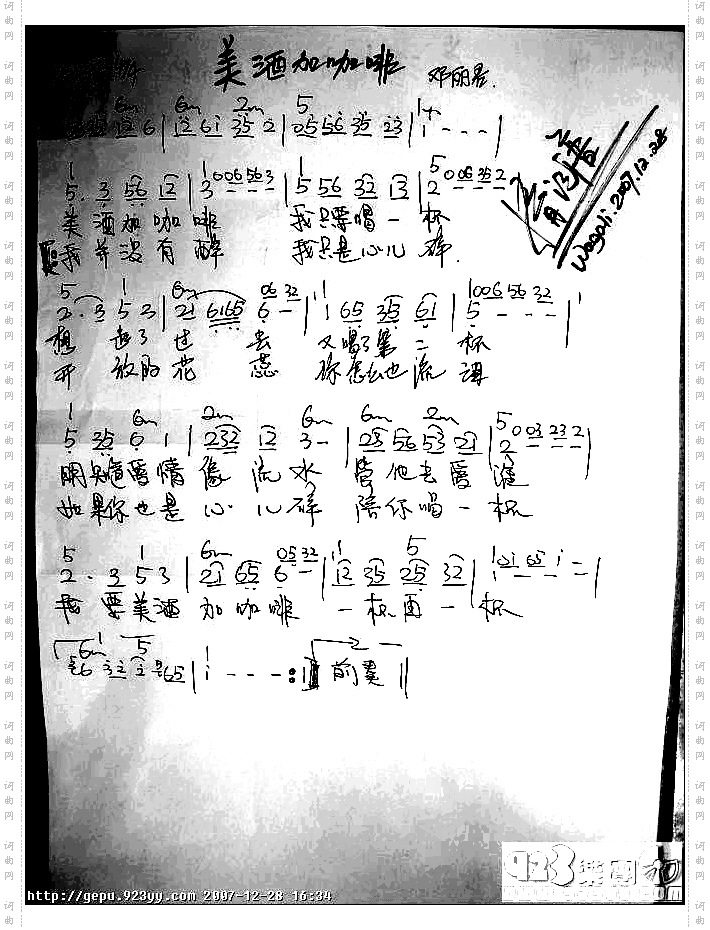 美酒加咖啡 邓丽君.
6m 6m 2m 5 1
1̇2̇ 6 | 1̇2̇ 61̇ 3̇5̇ 2̇ | 05 56 35 23 | 1̇ - - - |
Wagoli. 2007.12.28
1 1 1 5
5. 3 56 12 | 3 006563 | 5 56 32 13 | 2 0 06 35 2
美酒加咖啡 我只要喝一杯
我并没有醉 我只是心儿碎.
5 1 6m 06 32 1 1006 56 32 1
2 . 3 5 3 | 21 6165 6 - | 1 65 35 61 | 5 - - - |
想起了过去 又喝了第二杯
开放的花蕊 你怎么也流泪
1 6m 2m 6m 6m 2m 5 0 03 23 2
5 35 6 1 | 232 12 3 - | 23 56 53 21 | 2 - - - |
明知道爱情像流水 管他去爱谁
如果你也是心儿碎 陪你喝一杯
5 1 6m 05 32 1 5 1 01 65 1
2 . 3 5 3 | 21 65 6 - | 12 35 25 32 | 1 - - - |
我要美酒加咖啡 一杯再一杯
6m 1 5 1 2
| 1̇ - - - :| 前奏 ||
http://gepu.923yy.com 2007-12-28 16:34
923樂團
词曲网